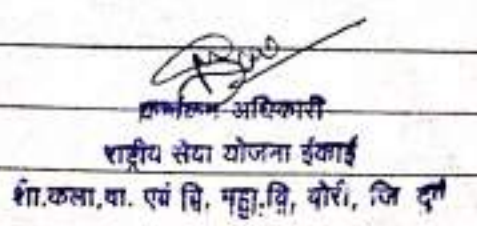 कार्यक्रम अधिकारी
राष्ट्रीय सेवा योजना ईकाई
शा.कला.वा. एवं वि. महा.वि. बोरी, जि दुर्ग